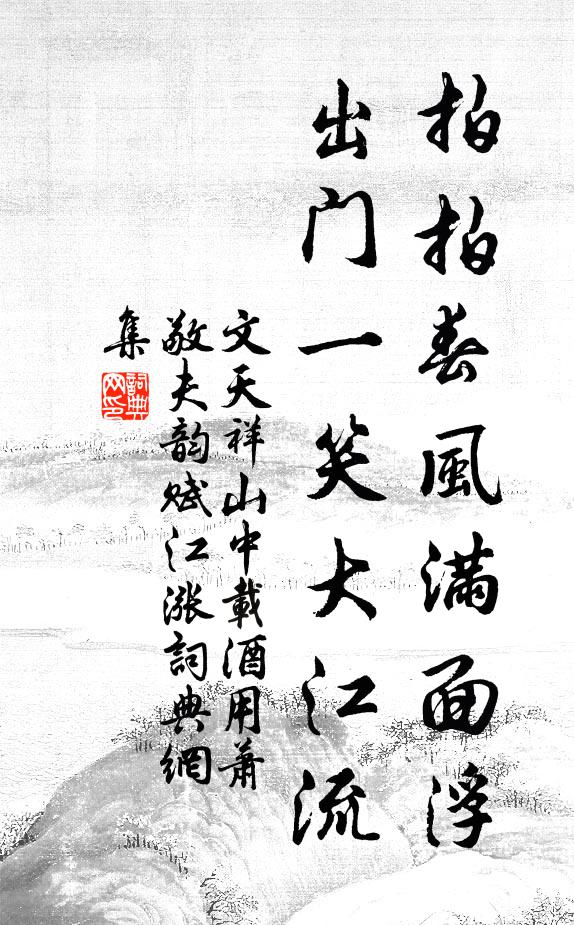 拍拍春風滿面浮
出门一笑大江流
文天祥山中載酒用蕭
敬夫韵賦江漲詞典網
集
詞典網印